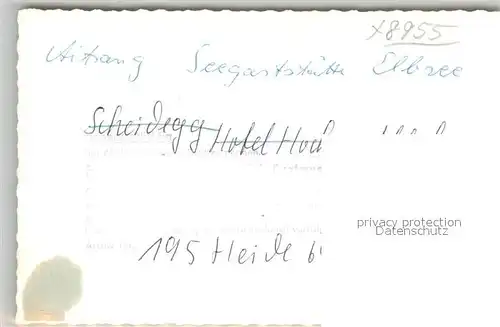 x8955
Aitrang Seegaststätte Elbsee
Scheidegg Hotel Hoch
privacy protection
Datenschutz
195 Heide